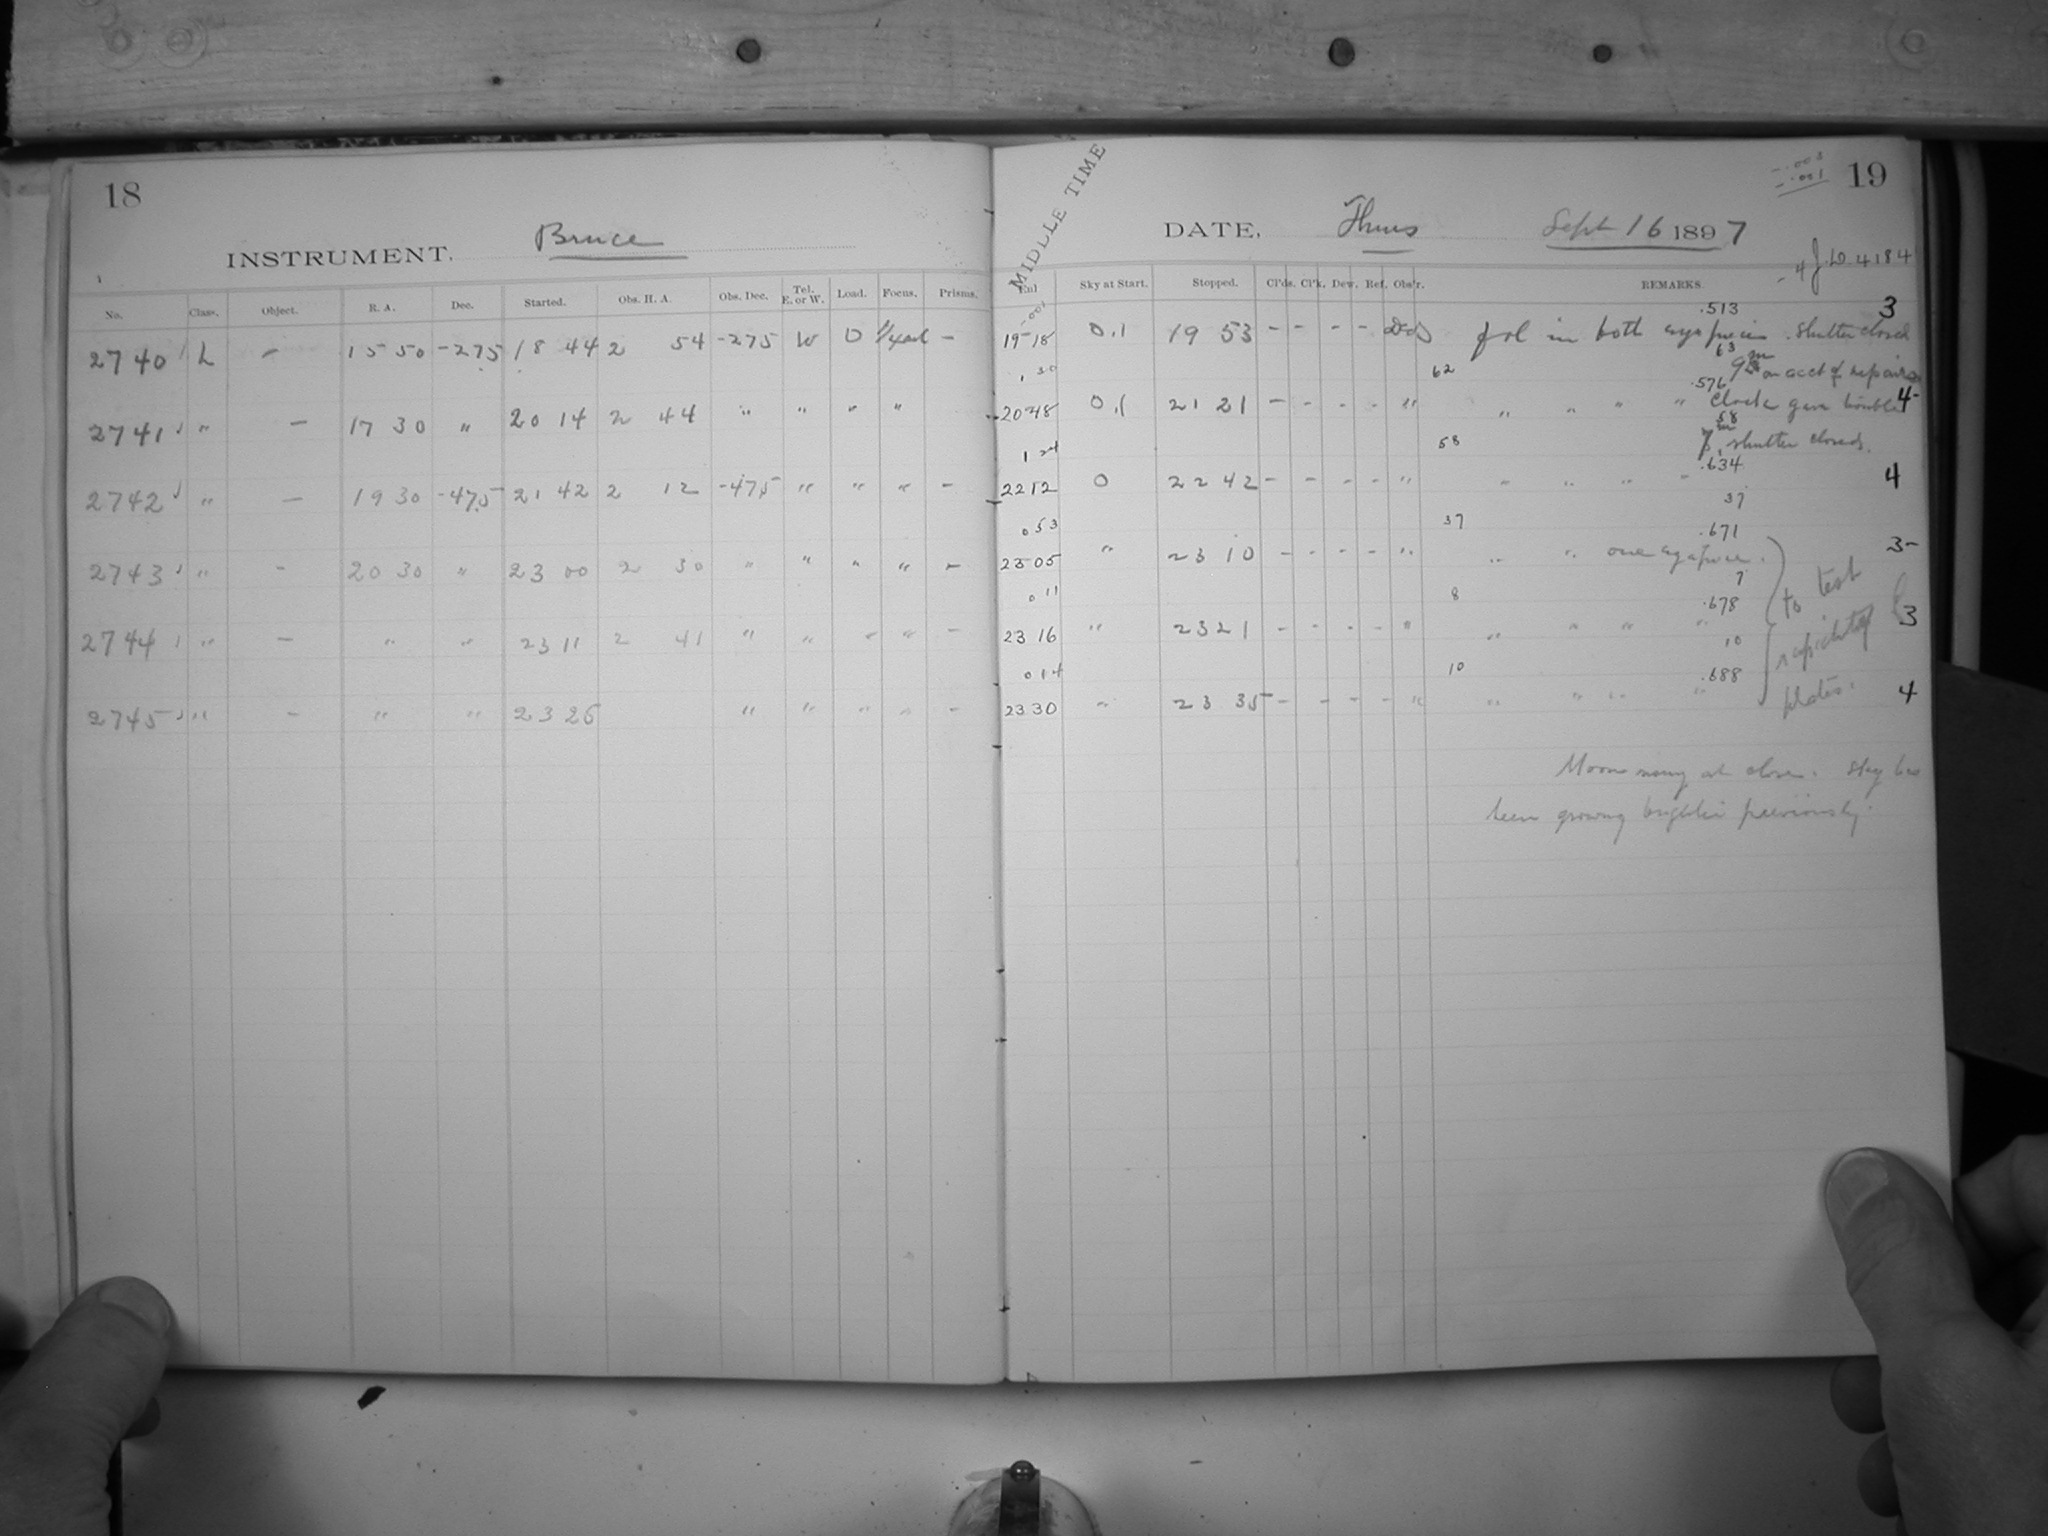 18
INSTRUMENT. Bruce
No. Class. Object. R. A. Dec. Started. Obs. H. A. Obs. Dec. Tel. E. or W. Load. Focus. Prisms.
2740 L – 15 50 -275 18 44 2 54 -275 W 0 –
2741 " – 17 30 " 20 14 2 44 " " " "
2742 " – 19 30 -475 21 42 2 12 -475 " " " –
2743 " – 20 30 " 23 00 2 30 " " " " –
2744 " – " " 23 11 2 41 " " " " –
2745 " – " " 23 25 " " " " –
MIDDLE TIME
19
-.003
-.001
DATE. Thurs Sept 16 1897
J.D. 4184
Sky at Start. Stopped. Cl'ds. Cl'k. Dew. Ref. Obs'r. REMARKS.
.513 3
19 18 0.1 19 53 – – – – fol in both shutter closed
1 30 62 63 9m on acct of repairs
.576
20 48 0.1 21 21 – – – – " " " " " Clock gave trouble 4-
1 24 58 58 7m shutter closed.
.634
22 12 0 22 42 – – – – " " " " " 4
0 53 37 37
.671
23 05 " 23 10 – – – – " " " one 3-
0 11 8 7
.678
23 16 " 23 21 – – – – " " " " " 3
0 14 10 10
.688
23 30 " 23 35 – – – – " " " " " 4
to test
rapidity of
plates.
Moon at close. Sky has
been growing brighter previously.